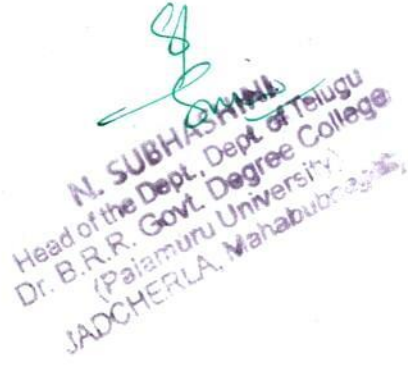 N. SUBHASHINI
Head of the Dept., Dept. of Telugu
Dr. B.R.R. Govt. Degree College
(Palamuru University)
JADCHERLA, Mahabubnagar,